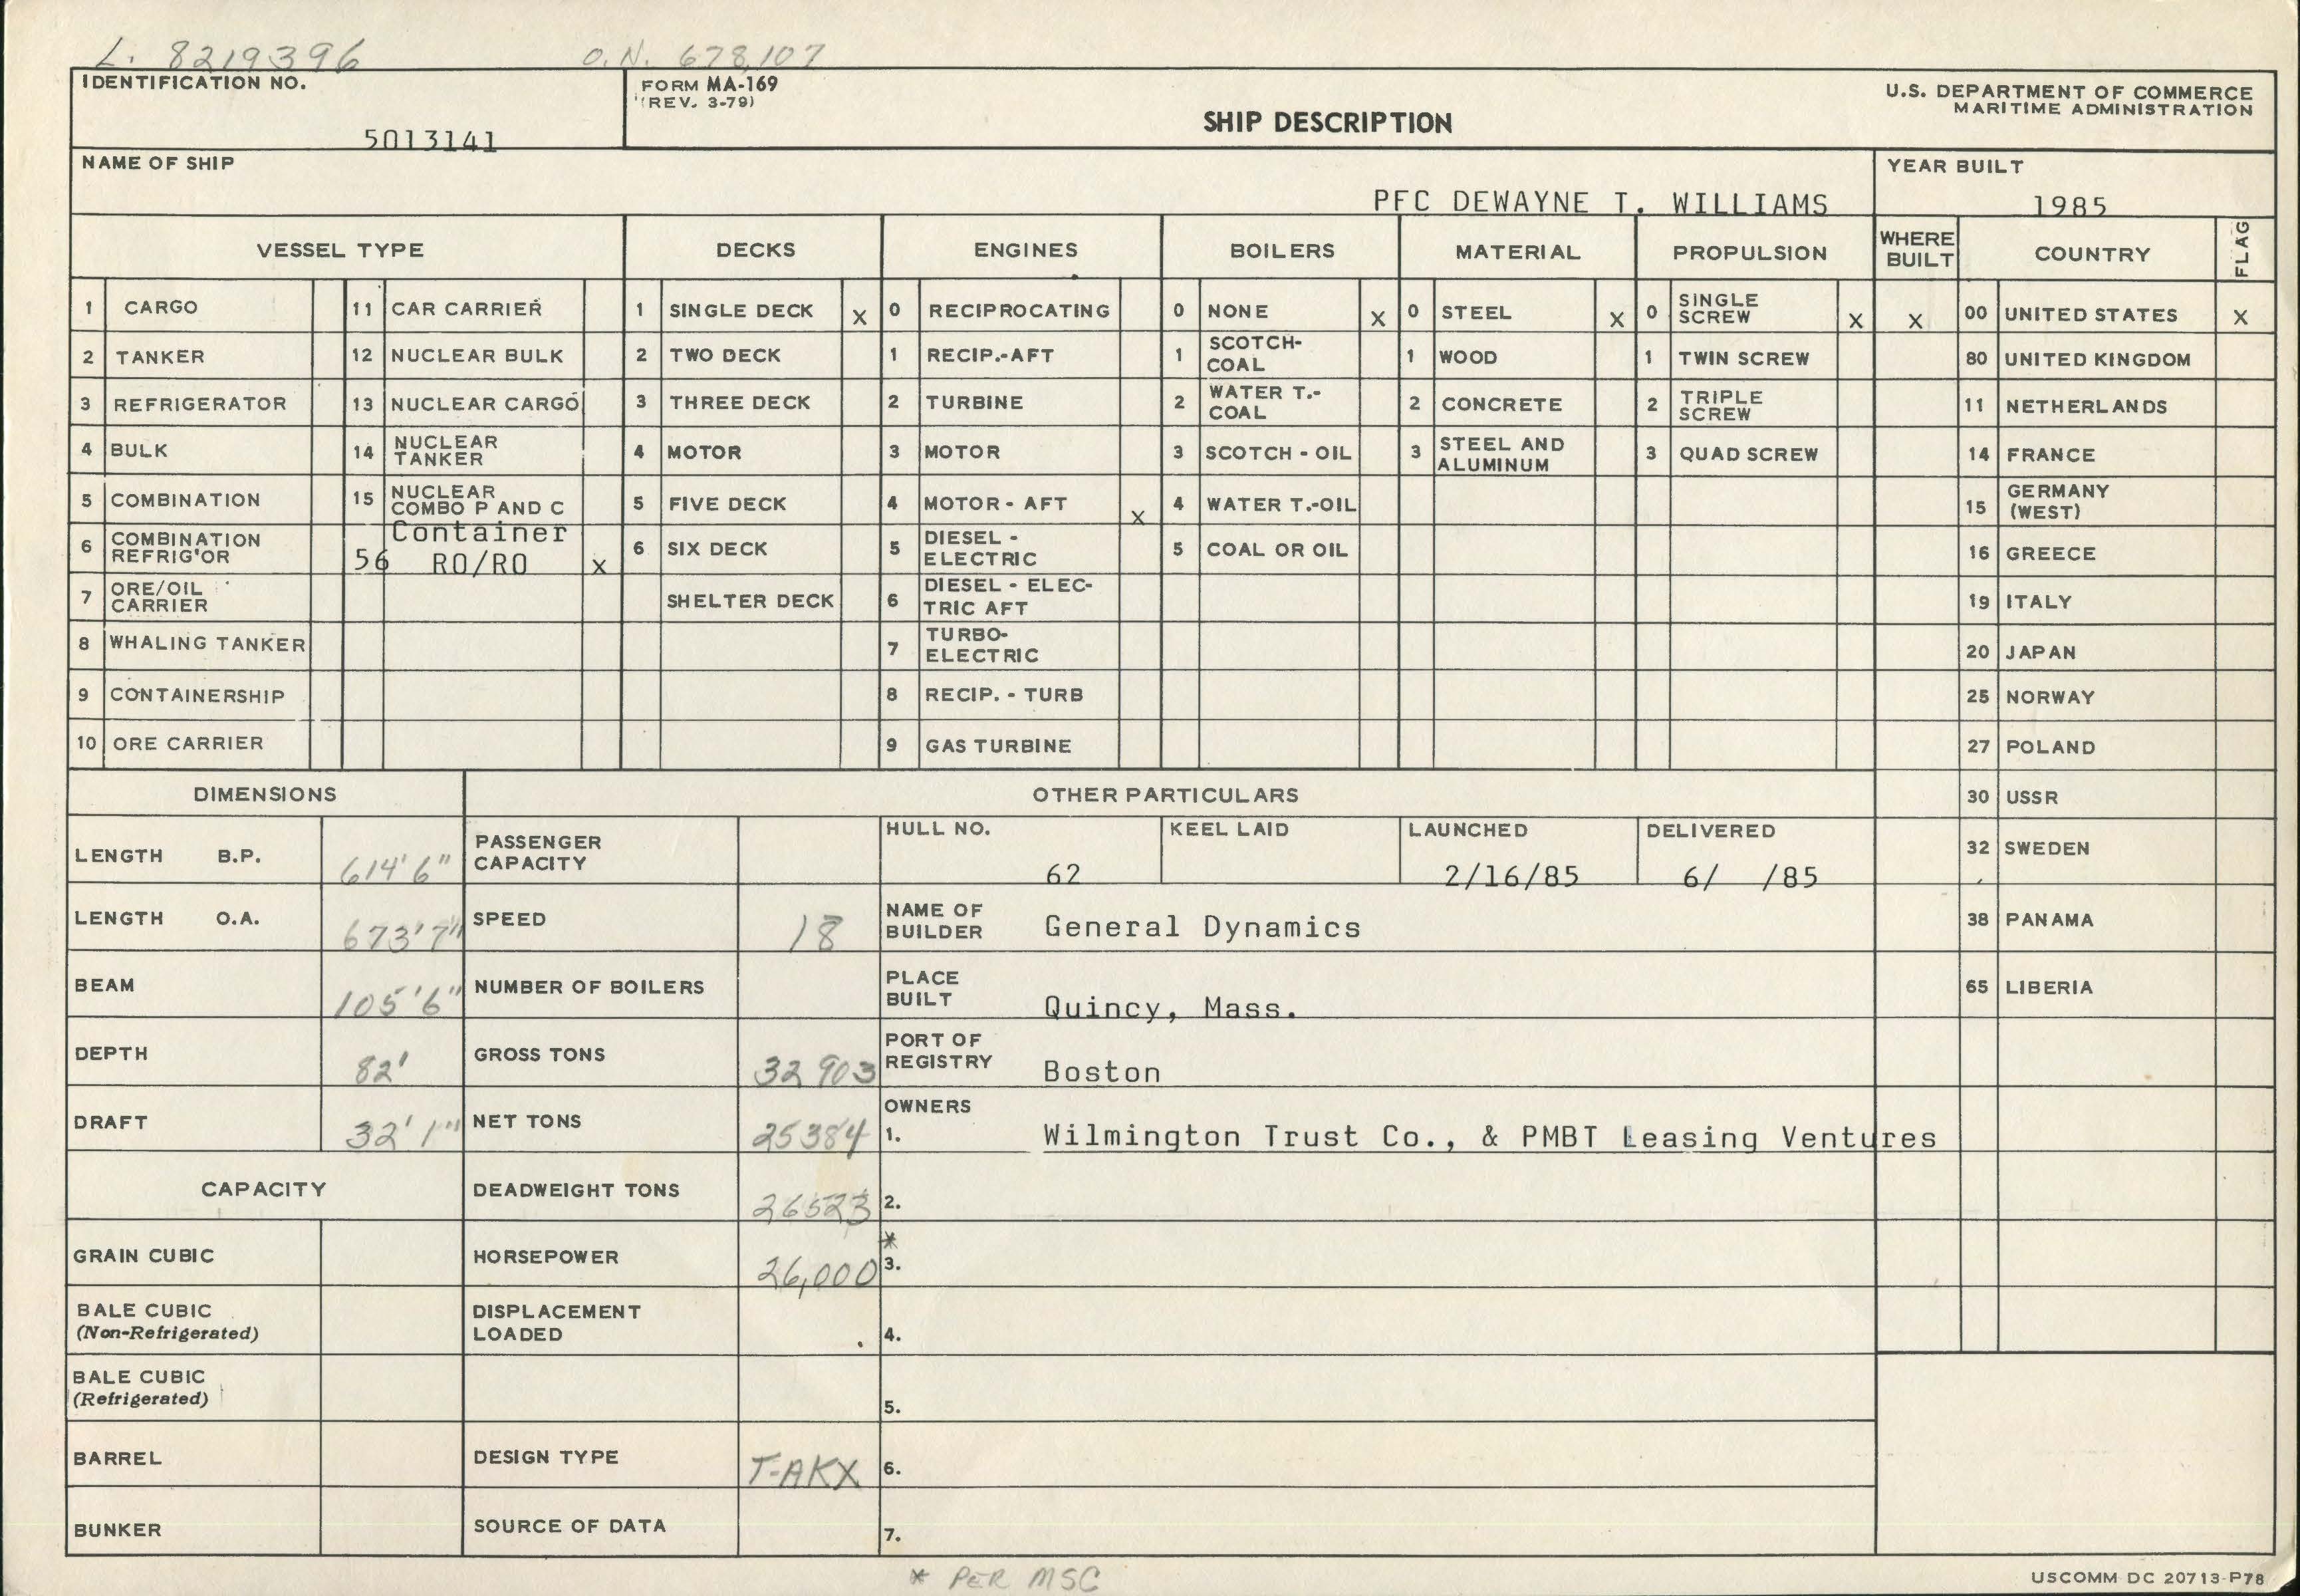 L. 8219396 O.N. 678,107
IDENTIFICATION NO. FORM MA-169 U.S. DEPARTMENT OF COMMERCE
(REV. 3-79) MARITIME ADMINISTRATION
SHIP DESCRIPTION
5013141
NAME OF SHIP YEAR BUILT
PFC DEWAYNE T. WILLIAMS 1985
VESSEL TYPE DECKS ENGINES BOILERS MATERIAL PROPULSION WHERE BUILT COUNTRY FLAG
1 CARGO 11 CAR CARRIER 1 SINGLE DECK X 0 RECIPROCATING 0 NONE X 0 STEEL X 0 SINGLE SCREW X X 00 UNITED STATES X
2 TANKER 12 NUCLEAR BULK 2 TWO DECK 1 RECIP.-AFT 1 SCOTCH-COAL 1 WOOD 1 TWIN SCREW 80 UNITED KINGDOM
3 REFRIGERATOR 13 NUCLEAR CARGO 3 THREE DECK 2 TURBINE 2 WATER T.-COAL 2 CONCRETE 2 TRIPLE SCREW 11 NETHERLANDS
4 BULK 14 NUCLEAR TANKER 4 MOTOR 3 MOTOR 3 SCOTCH - OIL 3 STEEL AND ALUMINUM 3 QUAD SCREW 14 FRANCE
5 COMBINATION 15 NUCLEAR COMBO P AND C 5 FIVE DECK 4 MOTOR - AFT X 4 WATER T.-OIL 15 GERMANY (WEST)
6 COMBINATION REFRIG'OR 56 Container RO/RO X 6 SIX DECK 5 DIESEL - ELECTRIC 5 COAL OR OIL 16 GREECE
7 ORE/OIL CARRIER SHELTER DECK 6 DIESEL - ELECTRIC AFT 19 ITALY
8 WHALING TANKER 7 TURBO-ELECTRIC 20 JAPAN
9 CONTAINERSHIP 8 RECIP. - TURB 25 NORWAY
10 ORE CARRIER 9 GAS TURBINE 27 POLAND
DIMENSIONS OTHER PARTICULARS 30 USSR
LENGTH B.P. 614'6" PASSENGER CAPACITY HULL NO. 62 KEEL LAID LAUNCHED 2/16/85 DELIVERED 6/ /85 32 SWEDEN
LENGTH O.A. 673'7" SPEED 18 NAME OF BUILDER General Dynamics 38 PANAMA
BEAM 105'6" NUMBER OF BOILERS PLACE BUILT Quincy, Mass. 65 LIBERIA
DEPTH 82' GROSS TONS 32903 PORT OF REGISTRY Boston
DRAFT 32'1" NET TONS 25384 OWNERS 1. Wilmington Trust Co., & PMBT Leasing Ventures
CAPACITY DEADWEIGHT TONS 26523 2.
GRAIN CUBIC HORSEPOWER 26,000 * 3.
BALE CUBIC (Non-Refrigerated) DISPLACEMENT LOADED 4.
BALE CUBIC (Refrigerated) 5.
BARREL DESIGN TYPE T-AKX 6.
BUNKER SOURCE OF DATA 7.
* PER MSC USCOMM DC 20713-P78